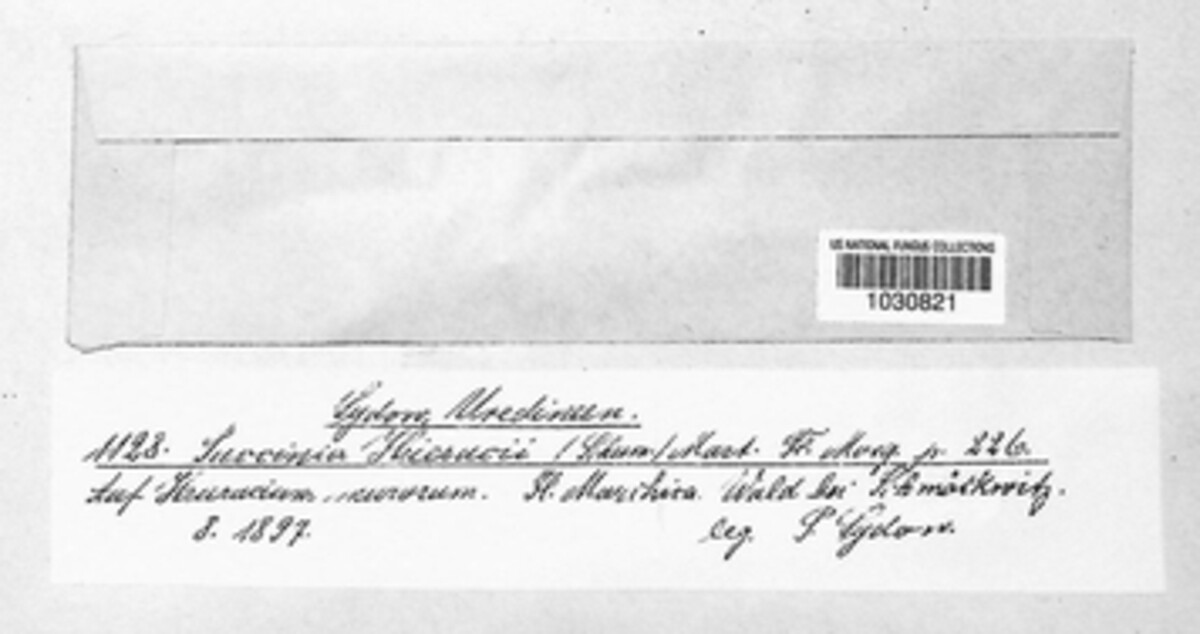 US NATIONAL FUNGUS COLLECTIONS
1030821
Sydow, Uredineen.
1128. Puccinia Hieracii (Schum) Mart. Fl. Mosq. p. 226.
Auf Hieracium murorum. Fl. Marchica. Wald bei Schmöckwitz.
8. 1897.
leg. P. Sydow.